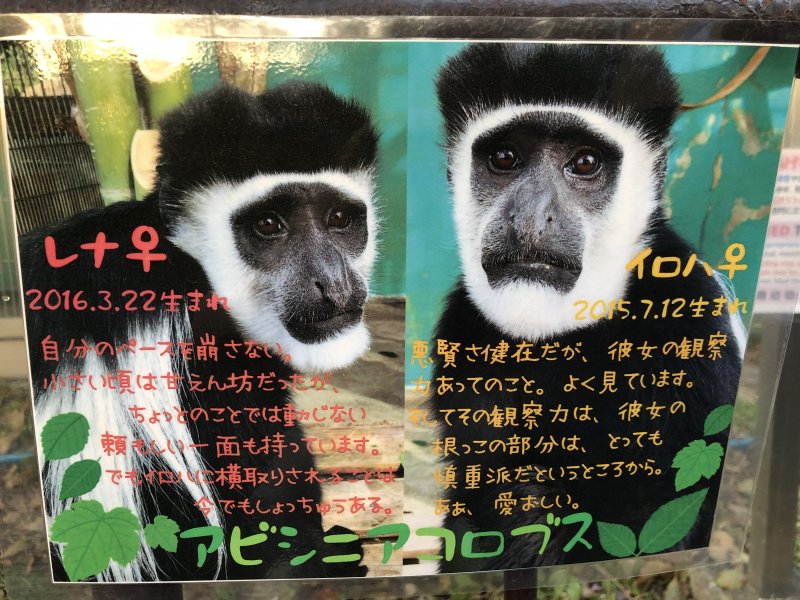 レナ♀
2016.3.22生まれ
自分のペースを崩さない。
小さい頃は甘えん坊だったが、
ちょっとのことでは動じない
頼もしい一面も持っています。
でもイロハに横取りされることは
今でもしょっちゅうある。
イロハ♀
2015.7.12生まれ
悪賢さ健在だが、彼女の観察
力あってのこと。よく見ています。
そしてその観察力は、彼女の
根っこの部分は、とっても
慎重派だというところから。
あぁ、愛おしい。
アビシニアコロブス